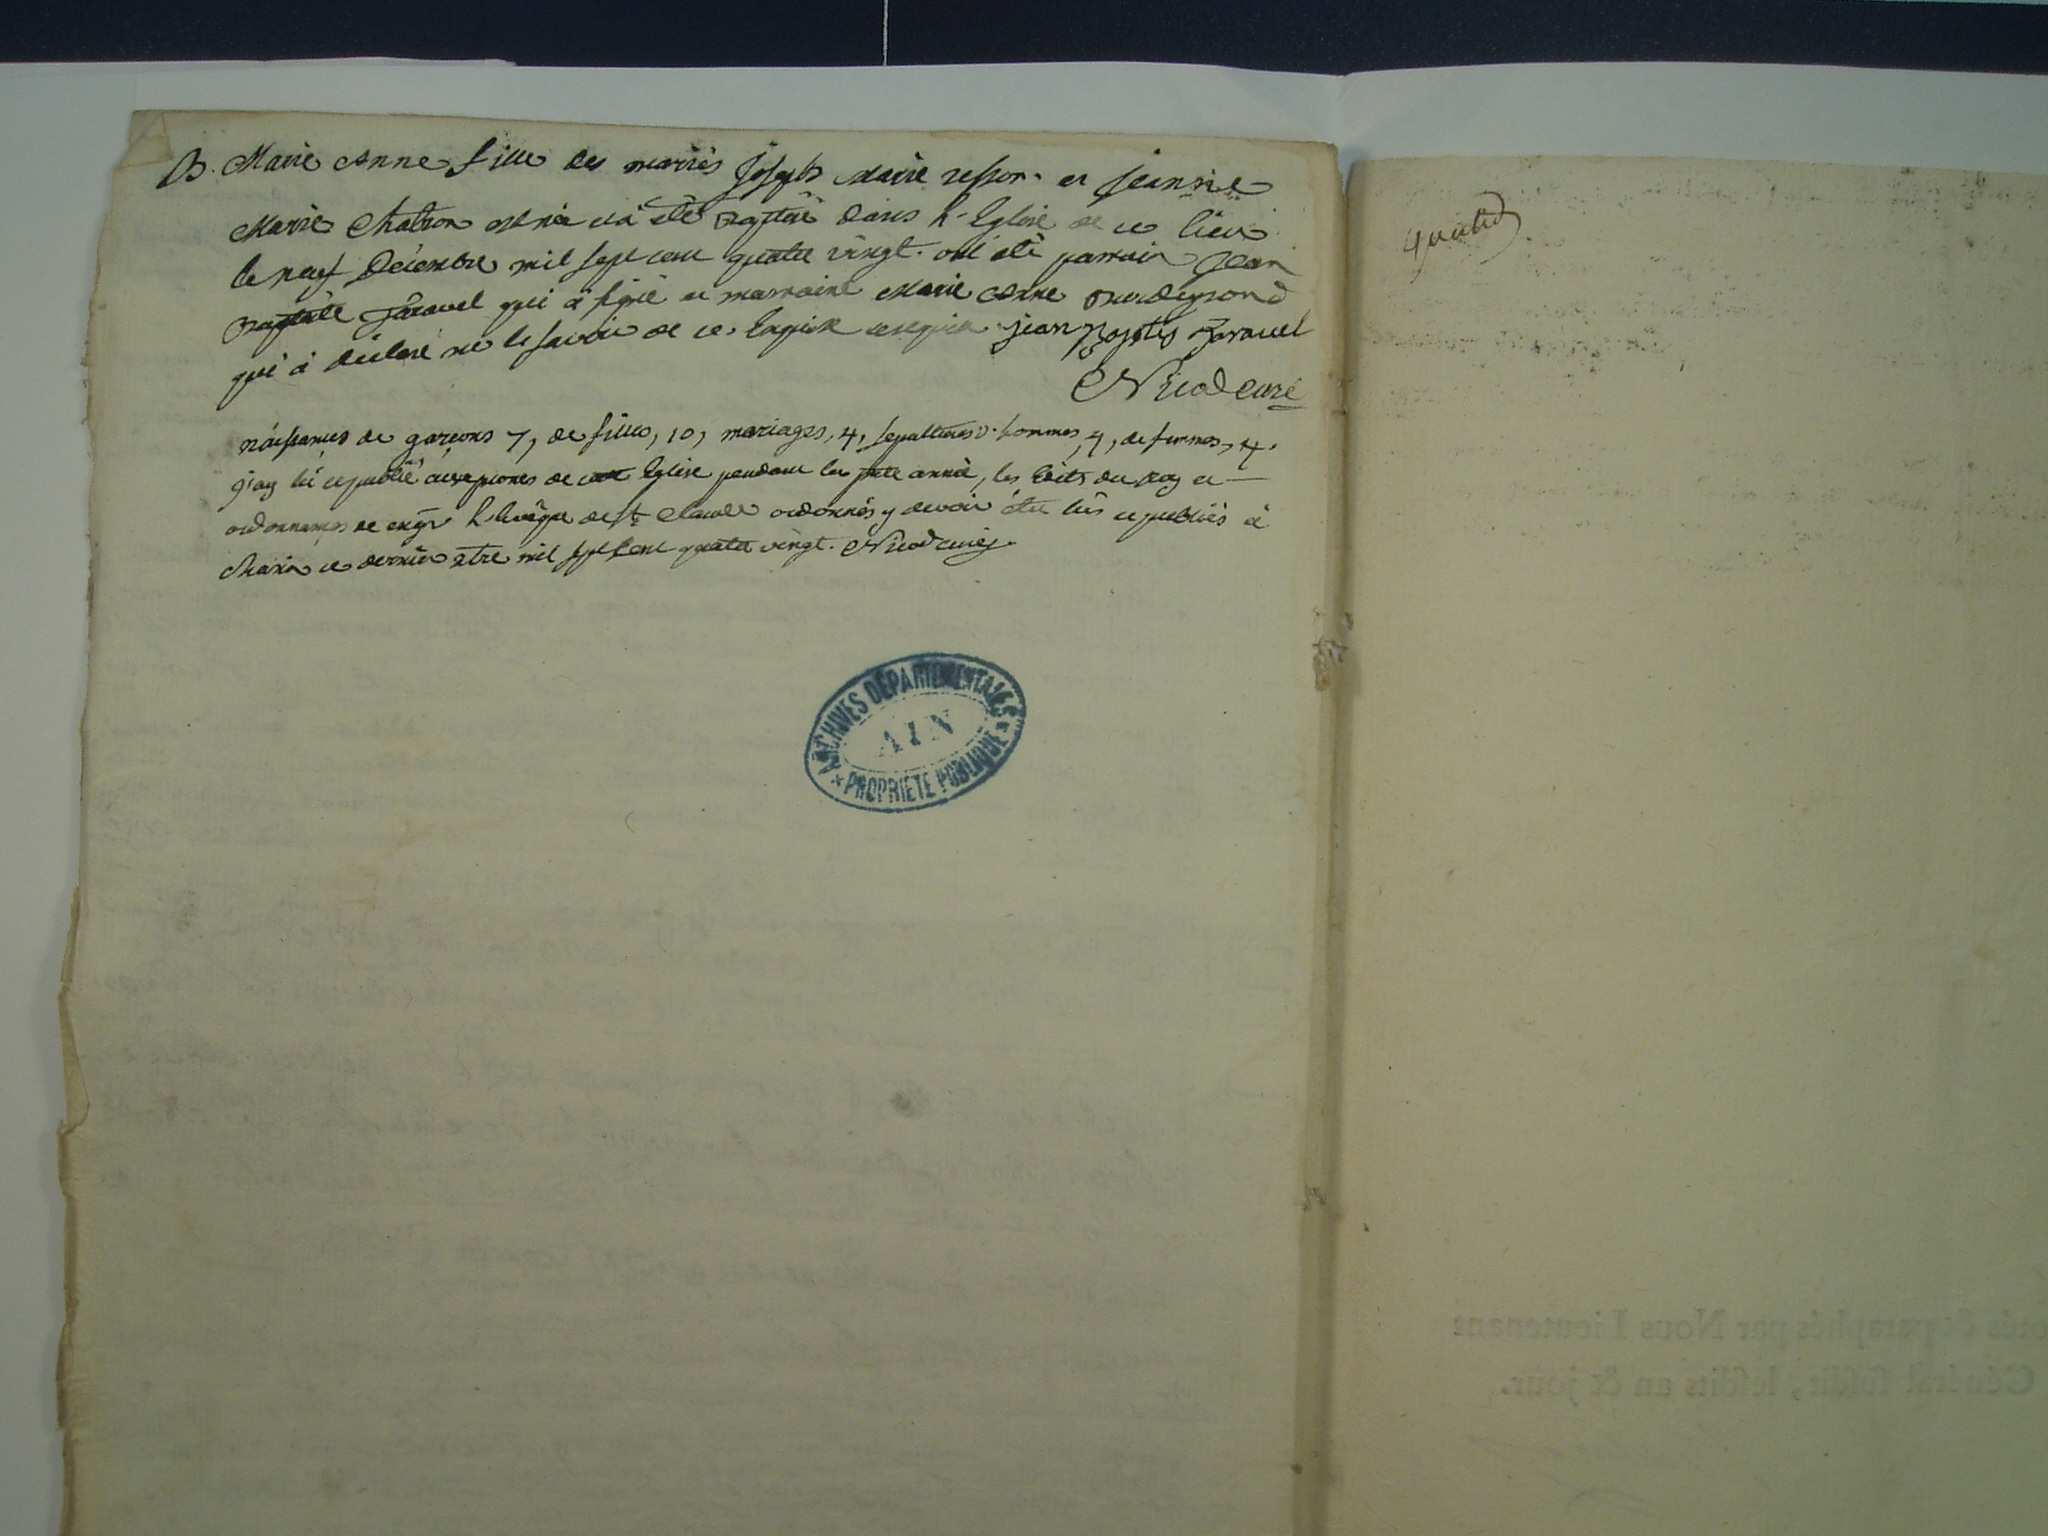 B. Marie Anne fille des mariés Joseph Marie resson et Jeanne
Marie Chatron est née et a été baptisée dans L'Eglise de ce lieu
le neuf Décembre mil sept cent quatre vingt. ont été parrain Jean
Baptiste Favavel qui a signé et marraine Marie Anne
qui a déclaré ne le savoir de ce enquise jean Baptis
Nicod Curé
naissances de garçons 7, de filles, 10, mariages, 4, sepultures d'hommes, 4, de femmes, 4.
j'ay lû et publié aux prones de cette Eglise pendant la pnte année, les Edits du Roy et
ordonnances de mgr L'Evêque de st Claude ordonnés y devoir être lûs et publiés à
ce dernier xbre mil sept cent quatre vingt. Nicod curé.
ARCHIVES DÉPARTEMENTALES
AIN
* PROPRIETE PUBLIQUE *
par Nous Lieutenant
Général susdit, lesdits an & jour.